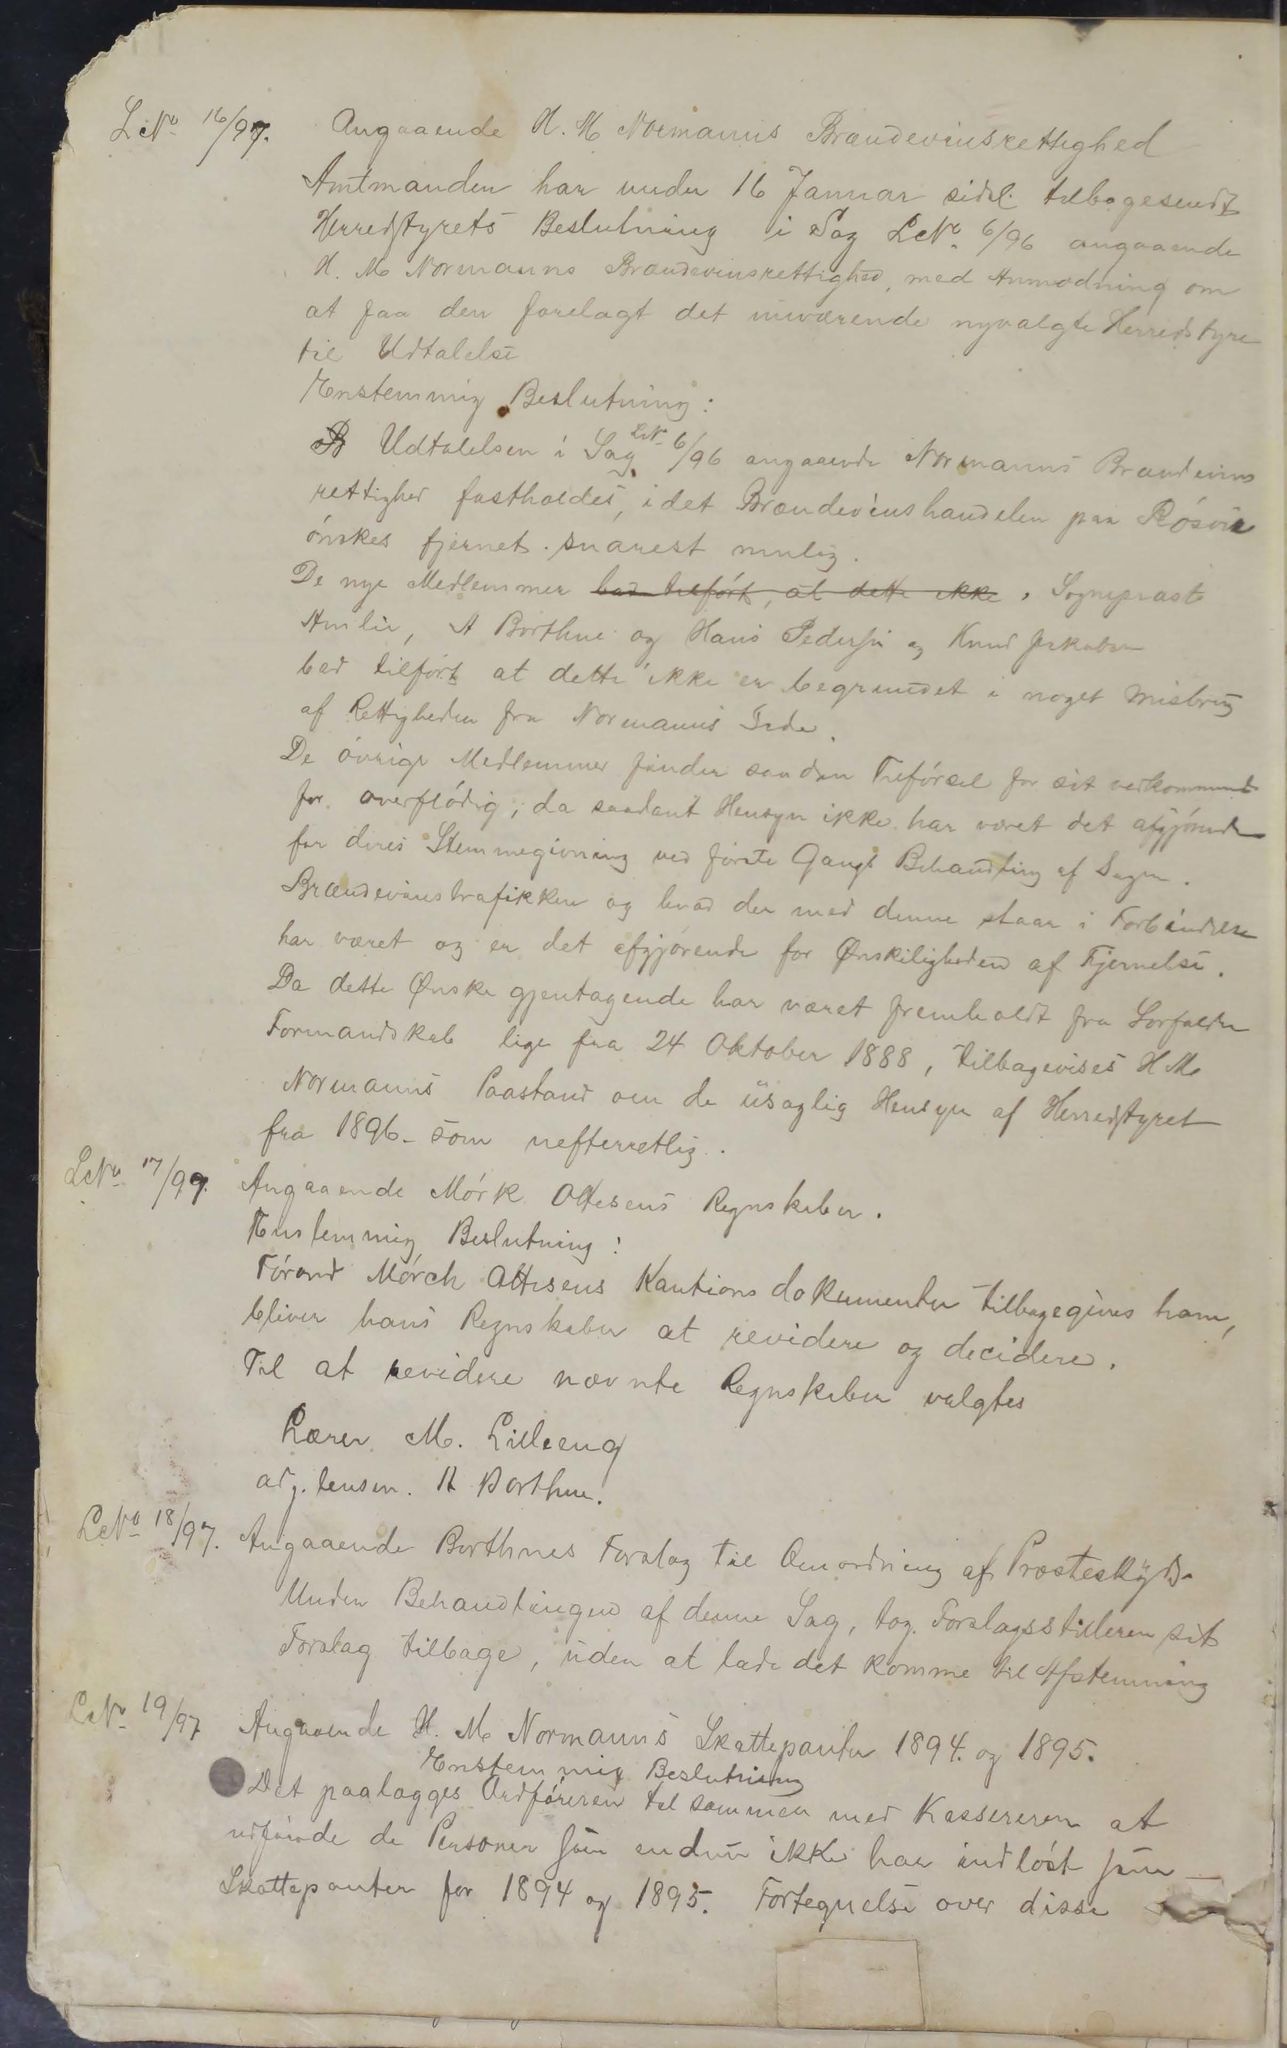 LNo 16/97. Angaaende H. M Normanns Brændevinsrettighed
Amtmanden har under 16 Januar sidstl. tilbagesendt
Herredstyrets Beslutning i Sag LNo 6/96 angaaende
H. M Normanns Brændevinsrettighed, med Anmodning om
at faa den forelagt det nuværende nyvalgte Herredstyre
til Udtalelse
Enstemmig Beslutning:
Udtalelsen i Sag LNo 6/96 angaaende Normanns Brændevins
rettighed fastholdes, idet Brændevinshandelen paa Rösvik
önskes fjernet snarest mulig.
De nye Medlemmer bad tilfört, at dette ikke, Sogneprast
Amlie, A Borthne og Hans Pedersen og Knud Jakobsen
bad tilfört at dette ikke er begrundet i noget Misbrug
af Rettigheden fra Normanns Side.
De övrige Medlemmer finder saadan Tilförsel for sit vedkommende
for overflödig, da saadant Hensyn ikke har været det afgjörende
for deres Stemmegivning ved förste Gangs Behandling af Sagen.
Brændevinstrafikken og hvad der med denne staar i Forbindelse
har været og er det afgjörende for Ønskeligheden af Fjernelse.
Da dette Ønske gjentagende har været fremholdt fra Sørfolden
Formandskab lige fra 24 Oktober 1888, tilbagevises H M
Normanns Paastand om de usaglig Hensyn af Herredstyret
fra 1896 som uefterretlig.
LNo 17/97. Angaaende Mörk Ottesens Regnskaber.
Enstemmig Beslutning:
Förend Mörch Ottesens Kautionsdokumenter tilbagegives ham,
bliver hans Regnskaber at revidere og decidere.
Til at revidere nævnte Regnskaber valgtes
Lærer M. Lilleeng
adj. lensm. A Borthne.
LNo 18/97. Angaaende Borthnes Forslag til Omordning af Præsteskyds
Under Behandlingen af denne Sag, tog Forslagsstilleren sit
Forslag tilbage, uden at lade det komme til Afstemning
LNo 19/97 Angaaende H. M Normanns Skattepanter 1894 og 1895.
Enstemmig Beslutning
Det paalægges Ordföreren til sammen med Kassereren at
udfinde de Personer som endnu ikke har indlöst sine
Skattepanter for 1894 og 1895. Fortegnelse over disse